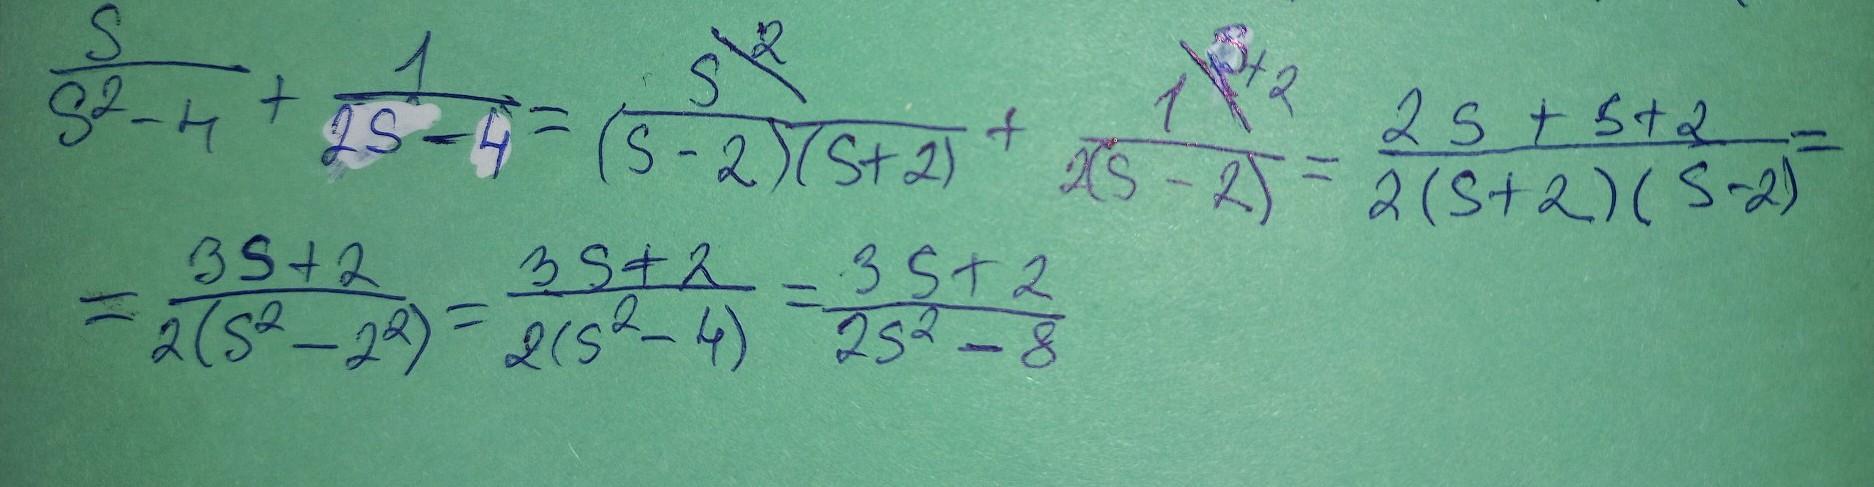 s/(s²-4) + 1/(2s-4) = s\2/((s-2)(s+2)) + 1\s+2/(2(s-2)) = (2s+s+2)/(2(s+2)(s-2)) =
= (3s+2)/(2(s²-2²)) = (3s+2)/(2(s²-4)) = (3s+2)/(2s²-8)